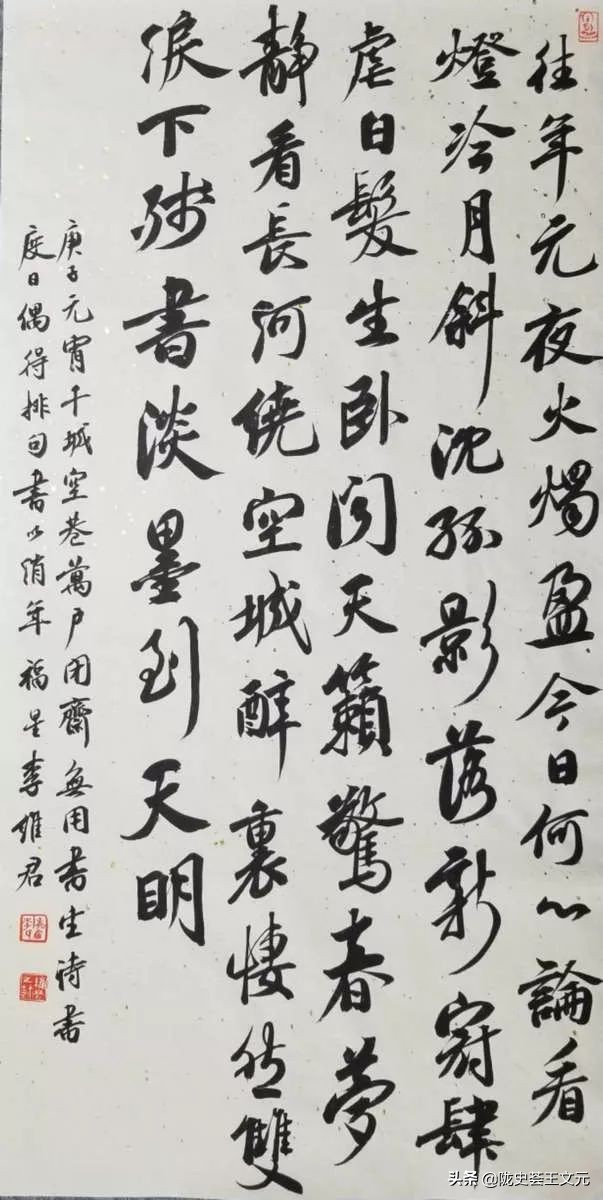 往年元夜火燭盈今日何心論看
燈冷月斜沈孤影落新冠肆
虐白髮生臥聞天籟驚春夢
靜看長河繞空城醉裏悽然雙
淚下殘書淡墨到天明
庚子元宵千城空巷萬戶閉齋無用書生詩書
度日偶得排句書以消年 福星李維君
头条 @陇史荟王文元